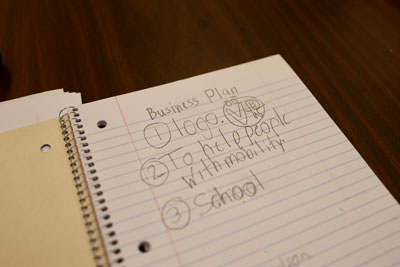 Business Plan
① logo. VR
② To help People
with mobility.
③ School